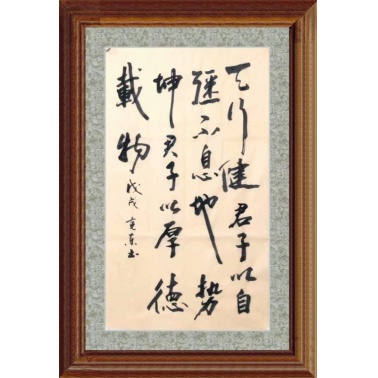 天行健君子以自
彊不息地势
坤君子以厚德
載物
戊戌